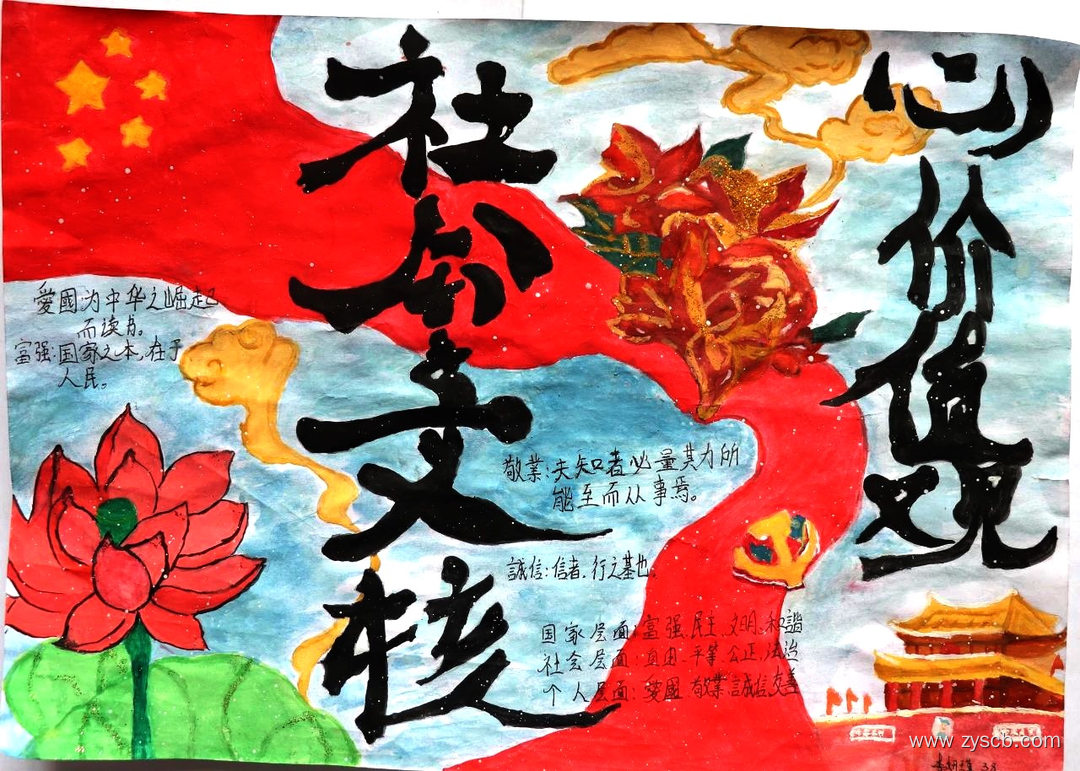 社会主义核
心价值观
愛國:为中华之崛起
而读书。
富强:国家之本,在于
人民。
敬業:夫知者必量其力所
能至而从事焉。
誠信:信者,行之基也。
国家层面:富强、民主、文明、和諧
社会层面:自由、平等、公正、法治
个人层面:愛國、敬業、誠信、友善
www.zyscb.com
38